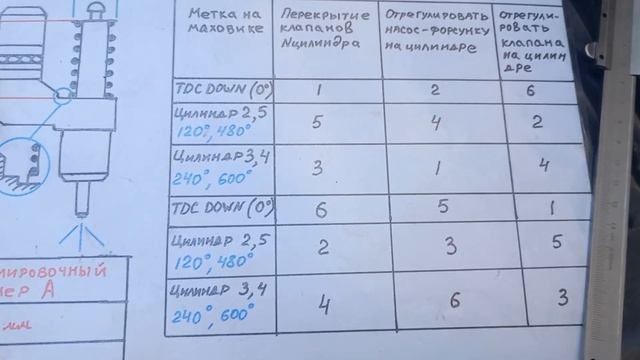 Метка на маховике
Перекрытие клапанов Nцилиндра
Отрегулировать насос-форсунку на цилиндре
Отрегули-ровать клапана на цилин дре
TDC DOWN (0°) 1 2 6
Цилиндр 2,5 120°, 480° 5 4 2
Цилиндр 3,4 240°, 600° 3 1 4
TDC DOWN (0°) 6 5 1
Цилиндр 2,5 120°, 480° 2 3 5
Цилиндр 3,4 240°, 600° 4 6 3
мировочный
ер А
мм